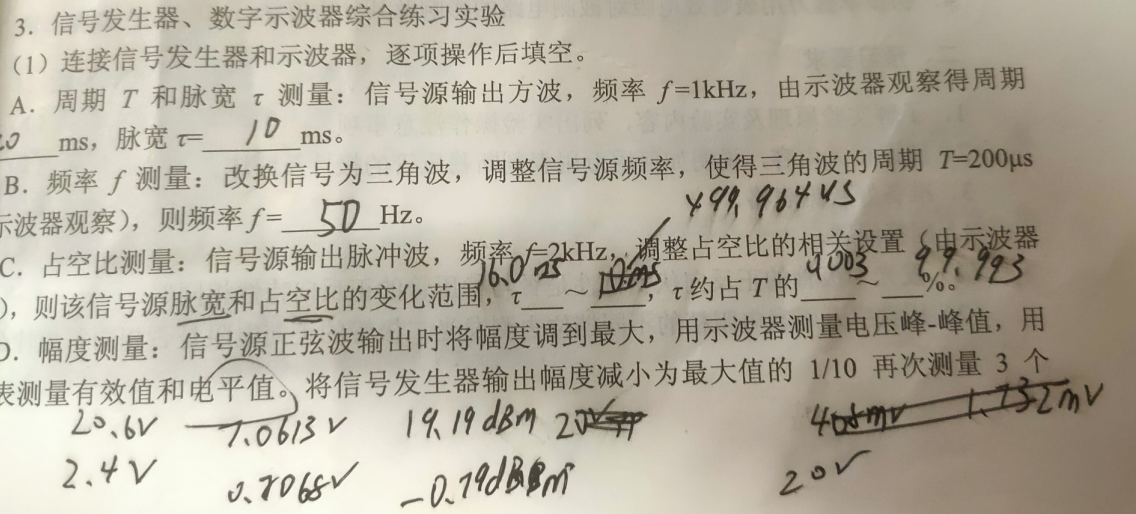 3. 信号发生器、数字示波器综合练习实验
(1) 连接信号发生器和示波器，逐项操作后填空。
A. 周期 T 和脉宽 τ 测量：信号源输出方波，频率 f=1kHz，由示波器观察得周期
ms，脉宽 τ= 10 ms。
B. 频率 f 测量：改换信号为三角波，调整信号源频率，使得三角波的周期 T=200μs
示波器观察)，则频率 f= 50 Hz。
499.964us
C. 占空比测量：信号源输出脉冲波，频率 f=2kHz，调整占空比的相关设置（由示波器
)，则该信号源脉宽和占空比的变化范围，τ 16.0ns ~ ，τ 约占 T 的 ~ 99.993 %。
D. 幅度测量：信号源正弦波输出时将幅度调到最大，用示波器测量电压峰-峰值，用
表测量有效值和电平值。将信号发生器输出幅度减小为最大值的 1/10 再次测量 3 个
20.6V 7.0613V 19.19dBm 20V 1.732mV
2.4V 0.7068V -0.79dBm 20V